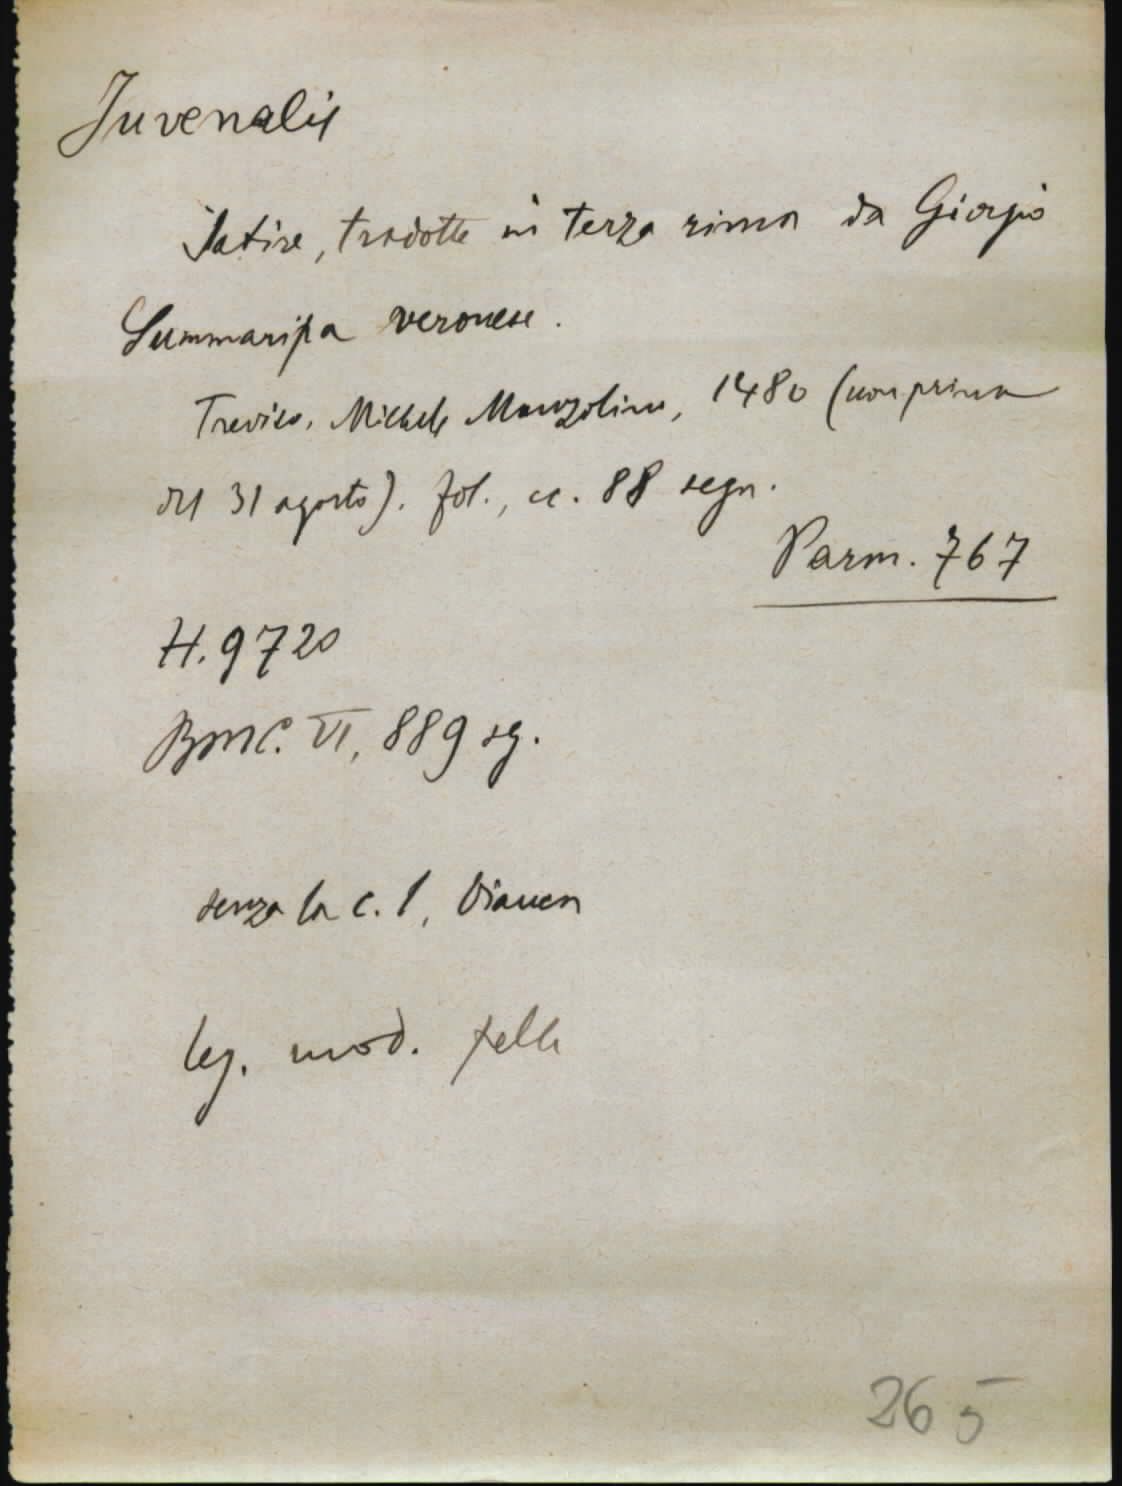 Juvenalis
Satire, tradotte in terza rima da Giorgio
Summaripa veronese.
Treviso, Michele Manzolino, 1480 (non prima
del 31 agosto). fol., cc. 88 segn.
Parm. 767
H. 9720
BMC. VI, 889 sg.
senza la c. 1, bianca
leg. mod. pelle
265